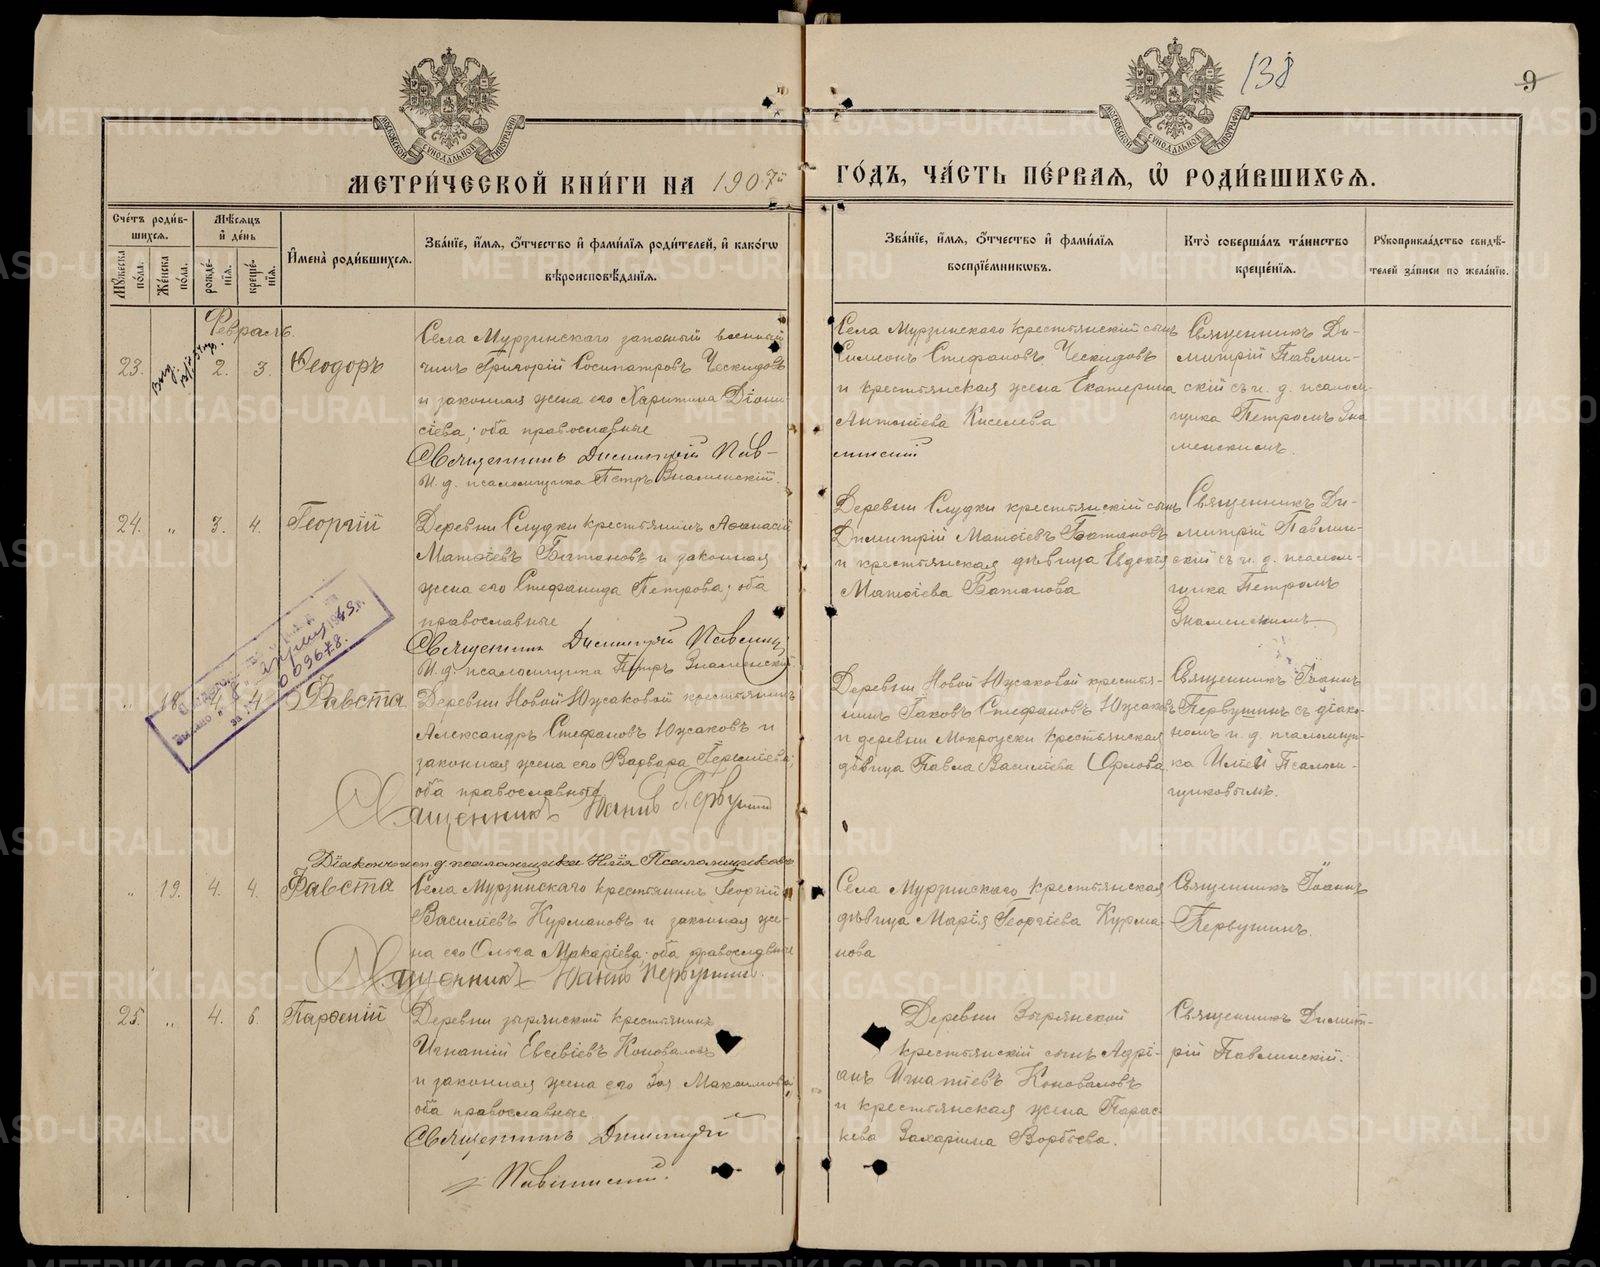 138
9
МОСКОВСКОЙ СѴНОДАЛЬНОЙ ТИПОГРАФІИ
МОСКОВСКОЙ СѴНОДАЛЬНОЙ ТИПОГРАФІИ
МЕТРИ́ЧЕСКОЙ КНИ́ГИ НА 1907й
ГО́ДЪ, ЧА́СТЬ ПЕ́РВАЯ, Ѡ҆ РОДИ́ВШИХСЯ.
Сче́тъ роди́в-
шихся.
Му́жеска по́ла.
Же́нска по́ла.
Мѣ́сяцъ
и҆ де́нь
рожде́-
нїя.
креще́-
нїя.
И҆мена̀ роди́вшихся.
Зва́нїе, и҆́мя, ѻ҆́тчество и҆ фами́лїя роди́телей, и҆ како́гѡ
вѣроисповѣ́данїя.
Зва́нїе, и҆́мя, ѻ҆́тчество и҆ фами́лїя
воспрїе́мникѡвъ.
Кто̀ соверша́лъ та́инство
креще́нїя.
Рукоприкла́дство свидѣ́-
телей за́писи по жела́нїю.
Февраль.
23.
2.
3.
Ѳеодоръ
Села Мурзинскаго запасный военный
чинъ Григорій Сосипатровъ Ческидовъ
и законная жена его Харитина Діони-
сіева; оба православные
Священникъ Димитрій Пав-
И. д. псаломщика Петръ Знаменскій.
Села Мурзинскаго крестьянскій сынъ
Симеонъ Стефановъ Ческидовъ
и крестьянская жена Екатерина
Антоніева Киселева
линскій
Священникъ Ди-
митрій Павлин-
скій съ и. д. псалом-
щика Петромъ Зна
менскимъ.
24.
"
3.
4.
Георгій
Деревни Слудки крестьянинъ Аѳанасій
Матѳіевъ Батановъ и законная
жена его Стефанида Петрова; оба
православные
Священникъ Димитрій Павлин
И. д. псаломщика Петръ Знаменскій
Деревни Слудки крестьянскій сынъ
Димитрій Матѳіевъ Батановъ
и крестьянская дѣвица Евдокія
Матѳіева Батанова
Священникъ Ди-
митрій Павлин-
скій съ и. д. псалом-
щика Петромъ
Знаменскимъ
"
18.
4.
4.
Фавста
Деревни Новой Южаковой крестьянинъ
Александръ Стефановъ Южаковъ и
законная жена его Варвара
оба православные
Священникъ Іоаннъ Первушинъ
Діаконъ и д. псаломщика Илія Псаломщиковъ
Деревни Новой Южаковой крестья-
нинъ Іаковъ Стефановъ Южаковъ
и деревни Мокроуски крестьянская
дѣвица Павла Василіева Орлова.
Священникъ Іоаннъ
Первушинъ съ діако-
номъ и. д. псаломщи-
ка Иліей Псалом-
щиковымъ.
1943г.
"
19.
4.
4.
Фавста
Села Мурзинскаго крестьянинъ Георгій
Василіевъ Курмановъ и законная же-
на его Ольга Макаріева; оба православные
Священникъ Іоаннъ Первушинъ.
Села Мурзинскаго крестьянская
дѣвица Марія Георгіева Курма
нова
Священникъ Іоаннъ
Первушинъ.
25.
"
4.
6.
Парѳеній
Деревни Зырянской крестьянинъ
Игнатій Евсевіевъ Коноваловъ
и законная жена его Зоя Максимова
оба православные
Священникъ Димитрій
Павлинскій.
Деревни Зырянской
крестьянскій сынъ Адрі-
анъ Игнатіевъ Коноваловъ
и крестьянская жена Парас-
кева Захаріина Воробьева.
Священникъ Димит-
рій Павлинскій.
METRIKI.GASO-URAL.RU